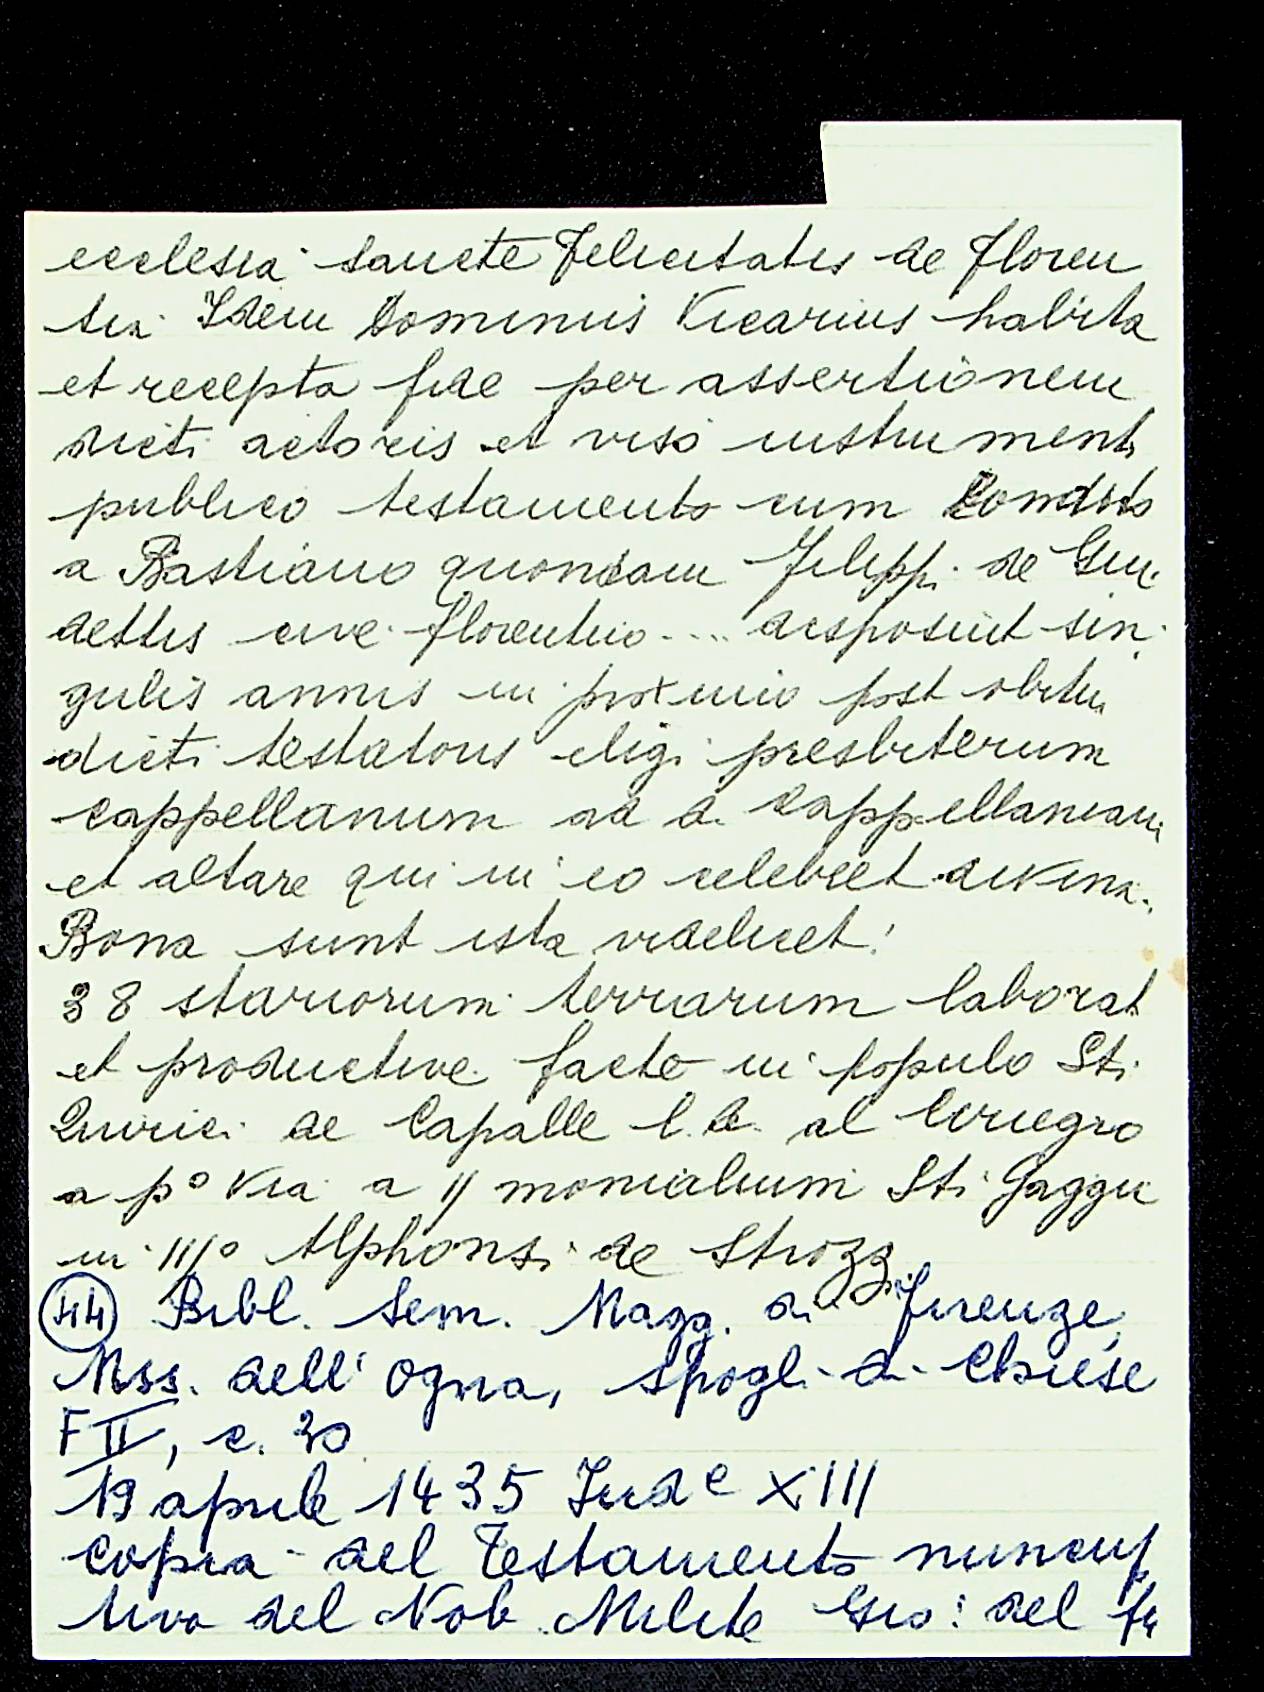 ecclesia sancte Felicitatis de Floren
tia Idem Dominus Vicarius habita
et recepta fide per assertionem
dicti actoris et viso instrument
publico testamento cum condito
a Bastiano quondam Filippi de Gui
dettis cive florentino .... disposuit sin
gulis annis in proximio post obitu
dicti testatoris eligi presbiterum
cappellanum ad d. cappellaniam
et altare qui in eo celebret divina.
Bona sunt ista videlicet:
38 stariorum terrarum laborat
et productive facte in populo Sti
Quirici de Capalle l.d. al Ciriegio
a p° via a II monialium Sti Gaggii
in III° Alphonsi de Strozzi
44 Bibl. Sem. Magg. di Firenze,
Mss. dell'Ogna, Spogli di Chiese
F II, c. 30
19 aprile 1435 Ind e XIII
Copia del Testamento nuncup
tivo del Nob. Milite Gio: del fu